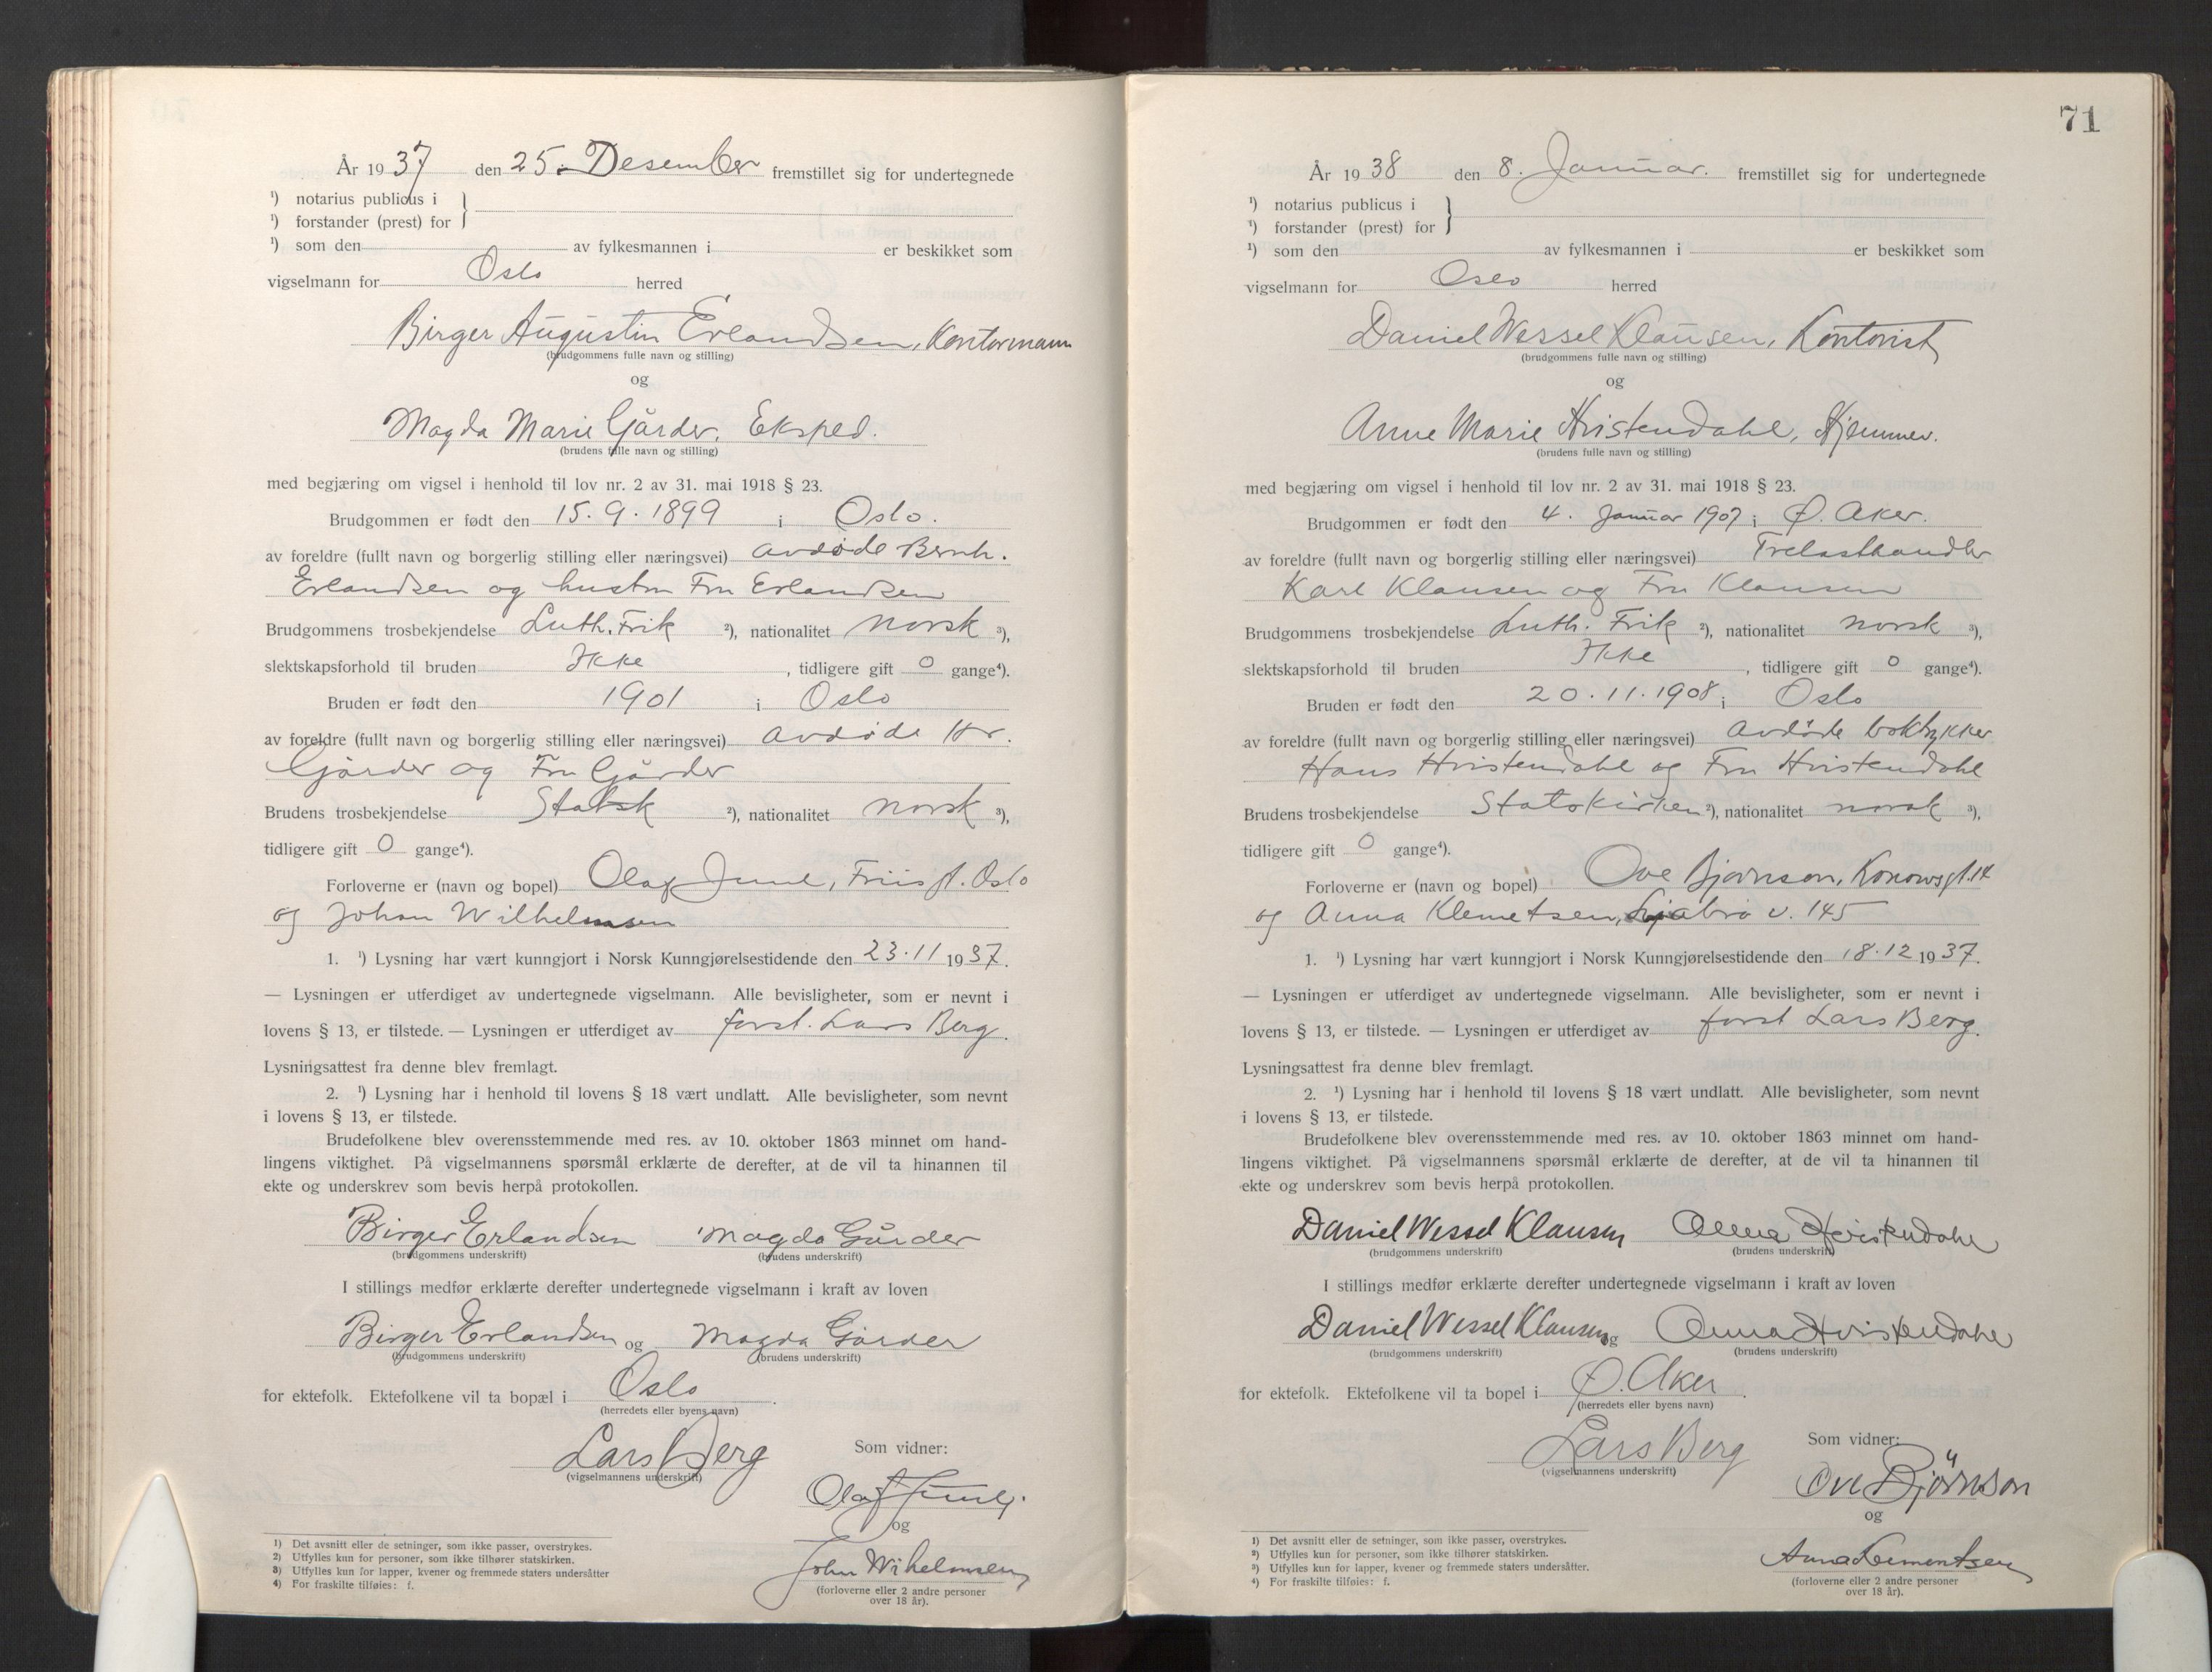 År 1937 den 25. Desember fremstillet sig for undertegnede
¹) notarius publicus i
¹) forstander (prest) for
¹) som den av fylkesmannen i er beskikket som
vigselmann for Oslo herred
Birger Augustin Erlandsen, Kontormann
(brudgommens fulle navn og stilling)
og
Magda Marie Gårder, Eksped.
(brudens fulle navn og stilling)
med begjæring om vigsel i henhold til lov nr. 2 av 31. mai 1918 § 23.
Brudgommen er født den 15.9.1899 i Oslo.
av foreldre (fullt navn og borgerlig stilling eller næringsvei) avdøde Bernh.
Erlandsen og hustru Fru Erlandsen
Brudgommens trosbekjendelse Luth. Frik ²), nationalitet norsk ³),
slektskapsforhold til bruden Ikke, tidligere gift 0 gange⁴).
Bruden er født den 1901 i Oslo
av foreldre (fullt navn og borgerlig stilling eller næringsvei) avdøde Hr.
Gårder og Fru Gårder
Brudens trosbekjendelse Statsk ²), nationalitet norsk ³),
tidligere gift 0 gange⁴).
Forloverne er (navn og bopel) Olaf Juul, Friisgt. Oslo
og Johan Wilhelmsen
1. ¹) Lysning har vært kunngjort i Norsk Kunngjørelsestidende den 23.11 1937.
— Lysningen er utferdiget av undertegnede vigselmann. Alle bevisligheter, som er nevnt i
lovens § 13, er tilstede. — Lysningen er utferdiget av forst. Lars Berg.
Lysningsattest fra denne blev fremlagt.
2. ¹) Lysning har i henhold til lovens § 18 vært undlatt. Alle bevisligheter, som nevnt
i lovens § 13, er tilstede.
Brudefolkene blev overensstemmende med res. av 10. oktober 1863 minnet om hand-
lingens viktighet. På vigselmannens spørsmål erklærte de derefter, at de vil ta hinannen til
ekte og underskrev som bevis herpå protokollen.
Birger Erlandsen Magda Gårder
(brudgommens underskrift) (brudens underskrift)
I stillings medfør erklærte derefter undertegnede vigselmann i kraft av loven
Birger Erlandsen og Magda Gårder
(brudgommens underskrift) (brudens underskrift)
for ektefolk. Ektefolkene vil ta bopæl i Oslo.
(herredets eller byens navn)
Lars Berg
(vigselmannens underskrift)
Som vidner:
Olaf
og
John Wilhelmsen
(forloverne eller 2 andre personer
over 18 år).
1) Det avsnitt eller de setninger, som ikke passer, overstrykes.
2) Utfylles kun for personer, som ikke tilhører statskirken.
3) Utfylles kun for lapper, kvener og fremmede staters undersåtter
4) For fraskilte tilføies: f.
71
År 1938 den 8. Januar. fremstillet sig for undertegnede
¹) notarius publicus i
¹) forstander (prest) for
¹) som den av fylkesmannen i er beskikket som
vigselmann for Oslo herred
Daniel Wessel Klausen, Kontorist
(brudgommens fulle navn og stilling)
og
Anne Marie Hvistendahl, Hjemmev.
(brudens fulle navn og stilling)
med begjæring om vigsel i henhold til lov nr. 2 av 31. mai 1918 § 23.
Brudgommen er født den 4. Januar 1907 i Ø. Aker.
av foreldre (fullt navn og borgerlig stilling eller næringsvei) Trelasthandler
Karl Klausen og Fru Klausen
Brudgommens trosbekjendelse Luth. Frik ²), nationalitet norsk ³),
slektskapsforhold til bruden Ikke, tidligere gift 0 gange⁴).
Bruden er født den 20.11.1908 i Oslo
av foreldre (fullt navn og borgerlig stilling eller næringsvei) Avdøde boktrykker
Hans Hvistendahl og Fru Hvistendahl
Brudens trosbekjendelse Statskirken ²), nationalitet norsk ³),
tidligere gift 0 gange⁴).
Forloverne er (navn og bopel) Ove Bjørnson, Konowsgt. 14
og Anna Klemetsen, Ljabrov. 145
1. ¹) Lysning har vært kunngjort i Norsk Kunngjørelsestidende den 18.12 1937.
— Lysningen er utferdiget av undertegnede vigselmann. Alle bevisligheter, som er nevnt i
lovens § 13, er tilstede. — Lysningen er utferdiget av forst Lars Berg.
Lysningsattest fra denne blev fremlagt.
2. ¹) Lysning har i henhold til lovens § 18 vært undlatt. Alle bevisligheter, som nevnt
i lovens § 13, er tilstede.
Brudefolkene blev overensstemmende med res. av 10. oktober 1863 minnet om hand-
lingens viktighet. På vigselmannens spørsmål erklærte de derefter, at de vil ta hinannen til
ekte og underskrev som bevis herpå protokollen.
Daniel Wessel Klausen Anna Hvistendahl
(brudgommens underskrift) (brudens underskrift)
I stillings medfør erklærte derefter undertegnede vigselmann i kraft av loven
Daniel Wessel Klausen og Anna Hvistendahl
(brudgommens underskrift) (brudens underskrift)
for ektefolk. Ektefolkene vil ta bopel i Ø. Aker.
(herredets eller byens navn)
Lars Berg
(vigselmannens underskrift)
Som vidner:
Ove Björnson
og
Anna Klementsen
(forloverne eller 2 andre personer
over 18 år).
1) Det avsnitt eller de setninger, som ikke passer, overstrykes.
2) Utfylles kun for personer, som ikke tilhører statskirken.
3) Utfylles kun for lapper, kvener og fremmede staters undersåtter.
4) For fraskilte tilføies: f.